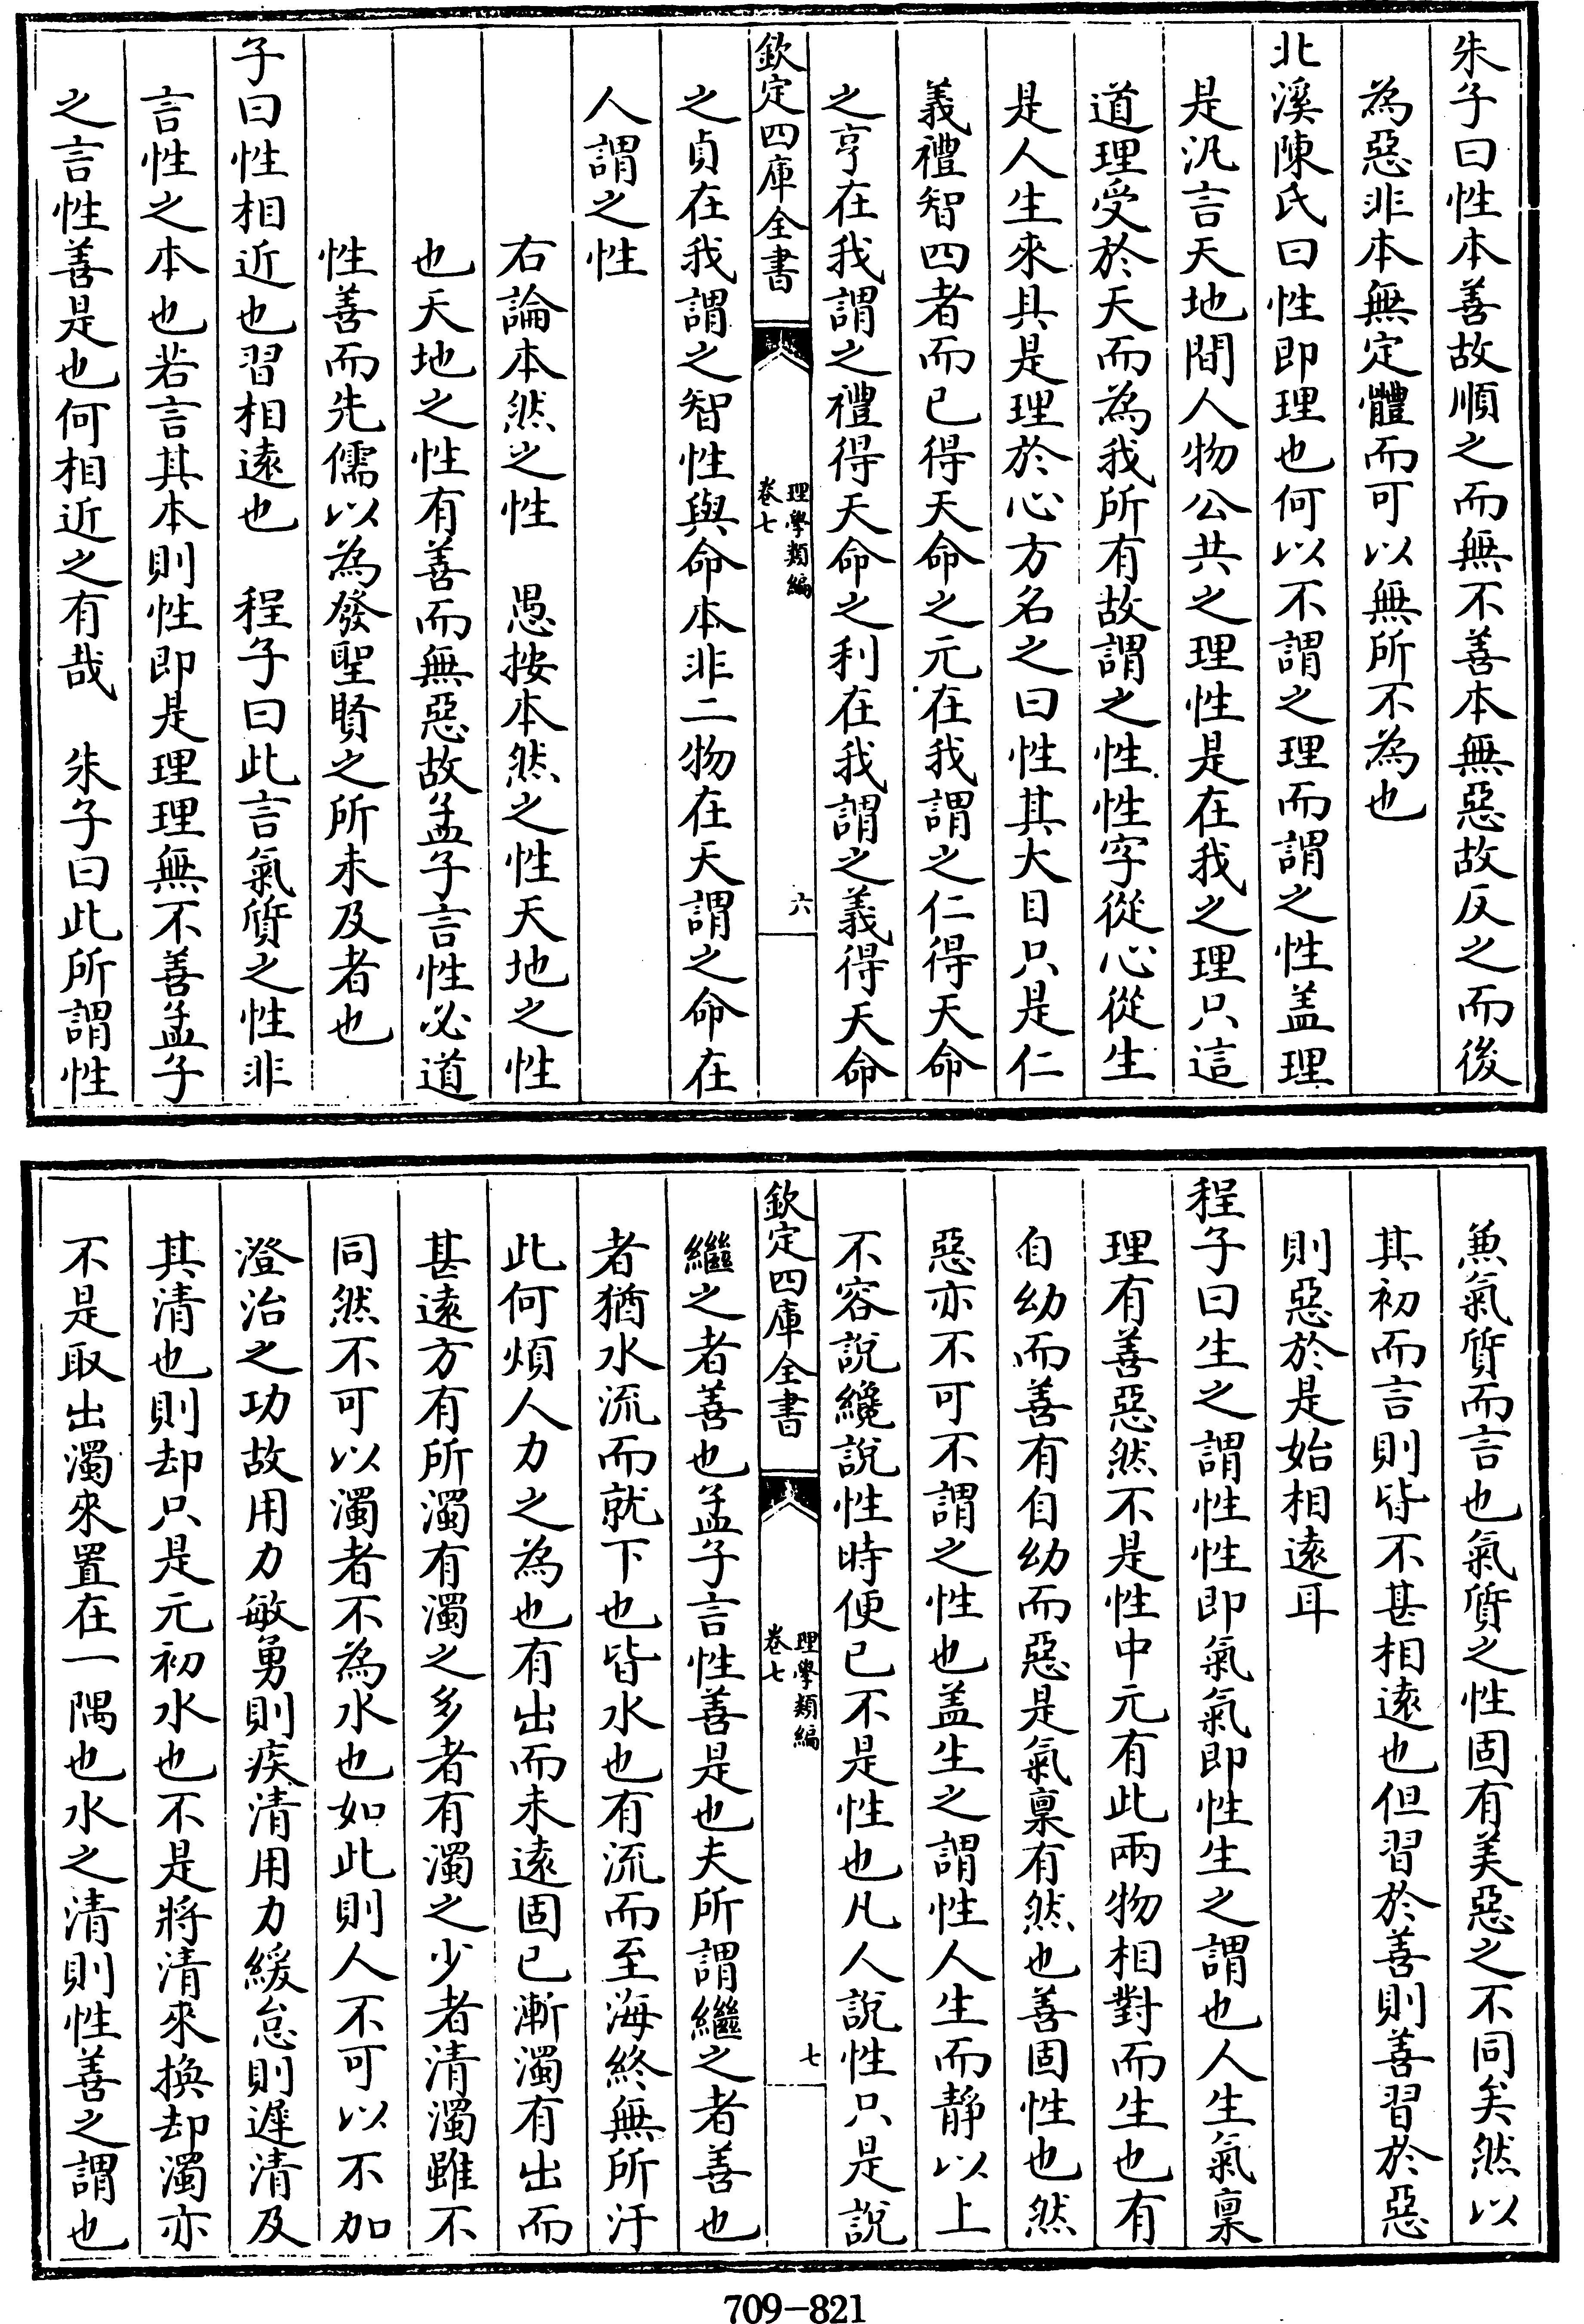 朱子曰性本善故順之而無不善本無惡故反之而後
為惡非本無定體而可以無所不為也
北溪陳氏曰性即理也何以不謂之理而謂之性盖理
是汎言天地間人物公共之理性是在我之理只這
道理受於天而為我所有故謂之性性字從心從生
是人生來具是理於心方名之曰性其大目只是仁
義禮智四者而已得天命之元在我謂之仁得天命
之亨在我謂之禮得天命之利在我謂之義得天命
欽定四庫全書
理學類編
卷七
六
之貞在我謂之智性與命本非二物在天謂之命在
人謂之性
右論本然之性 愚按本然之性天地之性
也天地之性有善而無惡故孟子言性必道
性善而先儒以為發聖賢之所未及者也
子曰性相近也習相遠也 程子曰此言氣質之性非
言性之本也若言其本則性即是理理無不善孟子
之言性善是也何相近之有哉 朱子曰此所謂性
兼氣質而言也氣質之性固有美惡之不同矣然以
其初而言則皆不甚相遠也但習於善則善習於惡
則惡於是始相遠耳
程子曰生之謂性性即氣氣即性生之謂也人生氣稟
理有善惡然不是性中元有此兩物相對而生也有
自幼而善有自幼而惡是氣稟有然也善固性也然
惡亦不可不謂之性也盖生之謂性人生而靜以上
不容說纔說性時便已不是性也凡人說性只是說
欽定四庫全書
理學類編
卷七
七
繼之者善也孟子言性善是也夫所謂繼之者善也
者猶水流而就下也皆水也有流而至海終無所汙
此何煩人力之為也有出而未遠固已漸濁有出而
甚遠方有所濁有濁之多者有濁之少者清濁雖不
同然不可以濁者不為水也如此則人不可以不加
澄治之功故用力敏勇則疾清用力緩怠則遲清及
其清也則却只是元初水也不是將清來換却濁亦
不是取出濁來置在一隅也水之清則性善之謂也
709-821